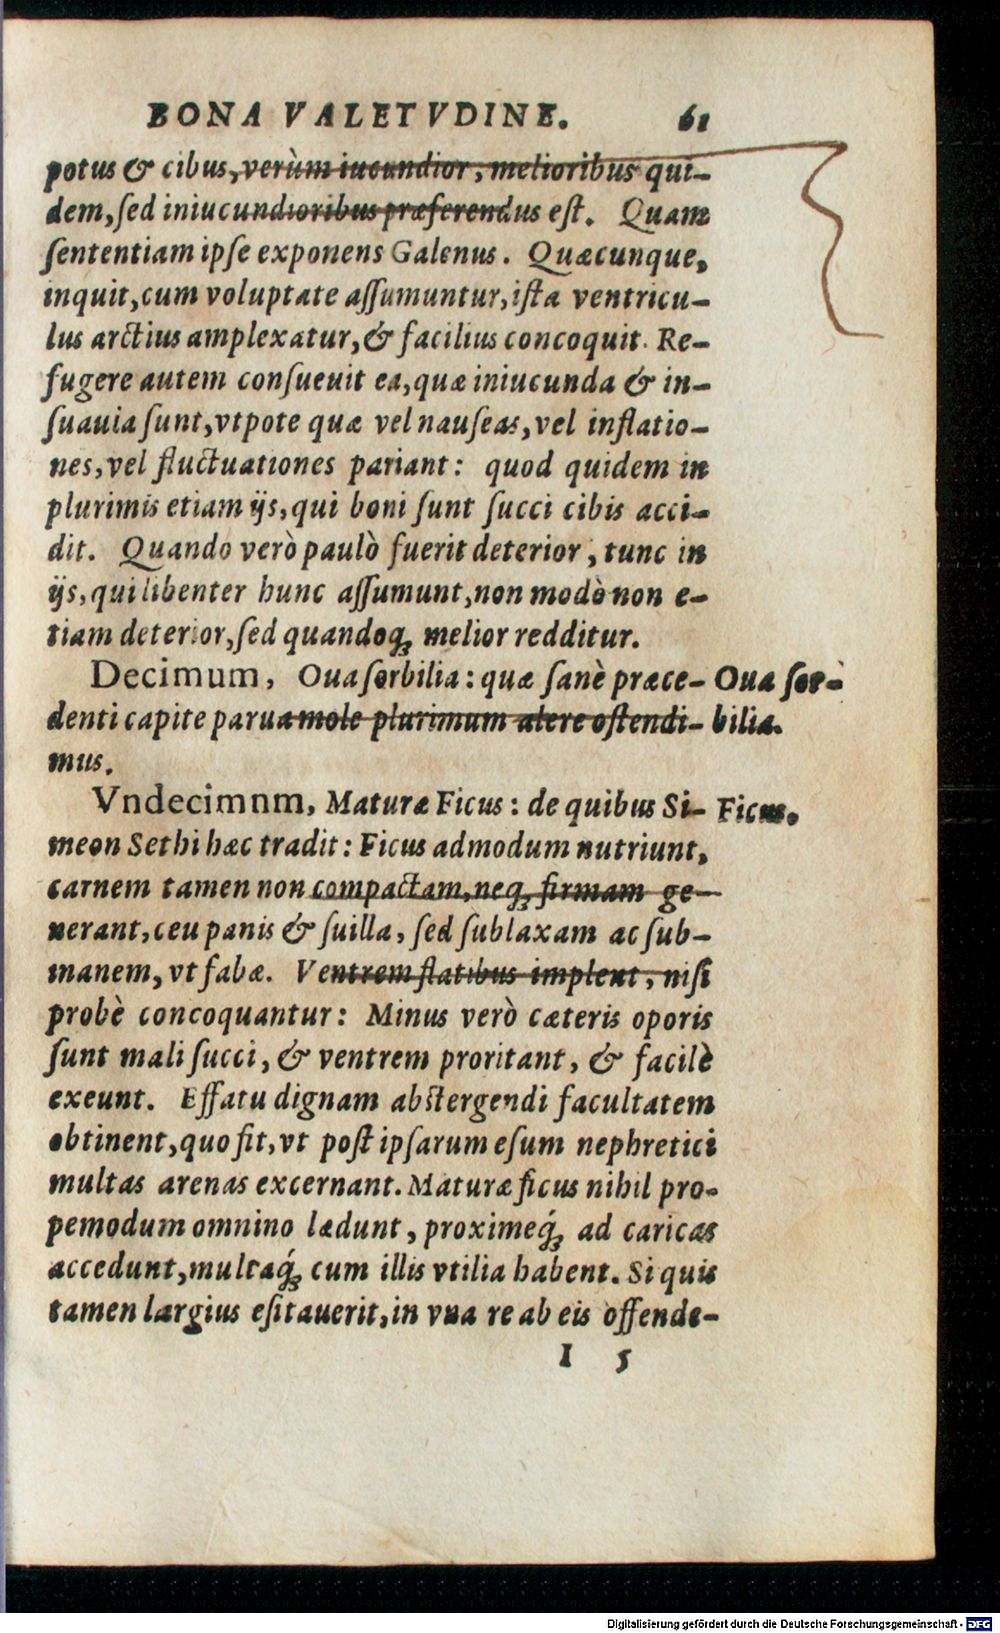 BONA VALETVDINE. 61
potus & cibus, verùm iucundior, melioribus qui-
dem, ſed iniucundioribus præferendus eſt. Quam
ſententiam ipſe exponens Galenus. Quæcunque,
inquit, cum voluptate aſſumuntur, iſta ventricu-
lus arctius amplexatur, & facilius concoquit. Re-
fugere autem conſueuit ea, quæ iniucunda & in-
ſuauia ſunt, vtpote quæ vel nauſeas, vel inflatio-
nes, vel fluctuationes pariant: quod quidem in
plurimis etiam ijs, qui boni ſunt ſucci cibis acci-
dit. Quando verò paulò fuerit deterior, tunc in
ijs, qui libenter hunc aſſumunt, non modò non e-
tiam deterior, ſed quandoq; melior redditur.
Decimum, Oua ſorbilia: quæ ſanè præce- Oua ſor-
denti capite parua mole plurimum alere oſtendi- bilia.
mus.
Vndecimnm, Maturæ Ficus: de quibus Si- Ficus.
meon Sethi hæc tradit: Ficus admodum nutriunt,
carnem tamen non compactam, neq; firmam ge-
nerant, ceu panis & ſuilla, ſed ſublaxam ac ſub-
manem, vt fabæ. Ventrem flatibus implent, niſi
probè concoquantur: Minus verò cæteris oporis
ſunt mali ſucci, & ventrem proritant, & facilè
exeunt. Effatu dignam abſtergendi facultatem
obtinent, quo fit, vt poſt ipſarum eſum nephretici
multas arenas excernant. Maturæ ficus nihil pro-
pemodum omnino lædunt, proximeq́; ad caricas
accedunt, multaq́; cum illis vtilia habent. Si quis
tamen largius eſitauerit, in vna re ab eis offende-
I 5
Digitalisierung gefördert durch die Deutsche Forschungsgemeinschaft - DFG